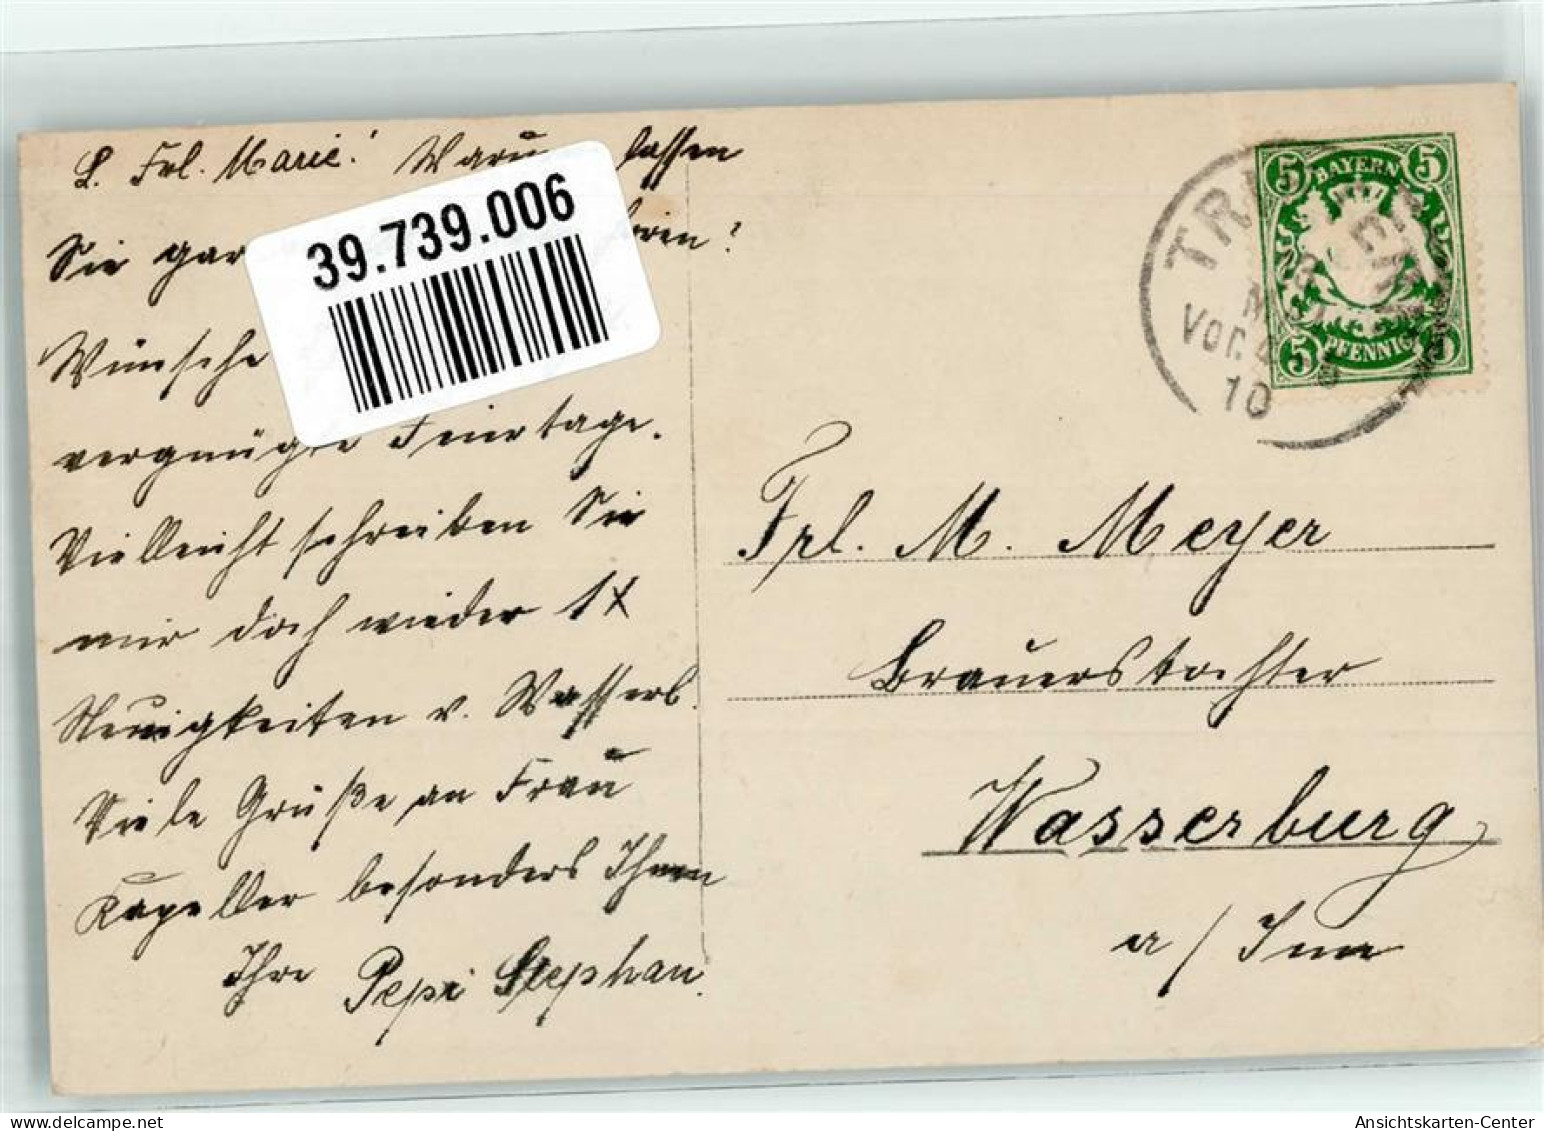 L. Frl. Marie! Warum lassen
Sie gar hören?
Wünsche
vergnügte Feiertage.
Vielleicht schreiben Sie
mir doch wieder 1x
Neuigkeiten v. Wasserb.
Viele Grüße an Frau
Kapeller besonders Ihnen
Ihre Pepi Stephan.
39.739.006
5 BAYERN 5
5 PFENNIG 5
VOR.
10
Frl. M. Meyer
Brauerstochter
Wasserburg
a/Inn
Ansichtskarten-Center